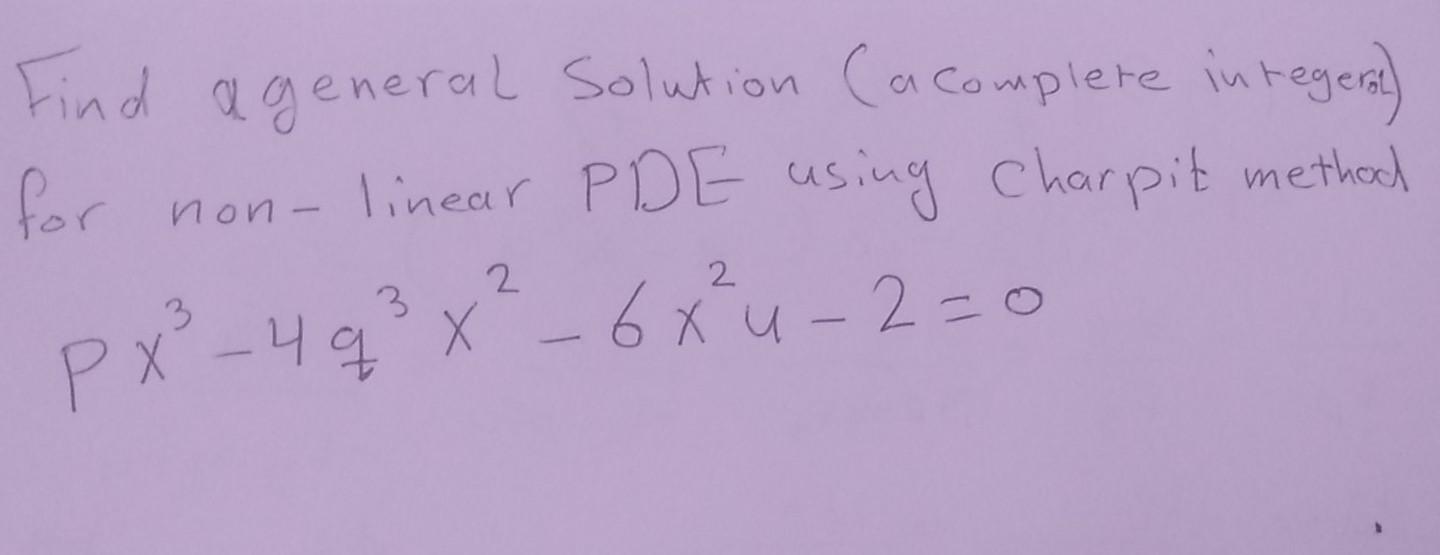 Find a general Solution (a complete integeral)
for non-linear PDE using Charpit method
px³ - 4q³x² - 6x²u - 2 = 0